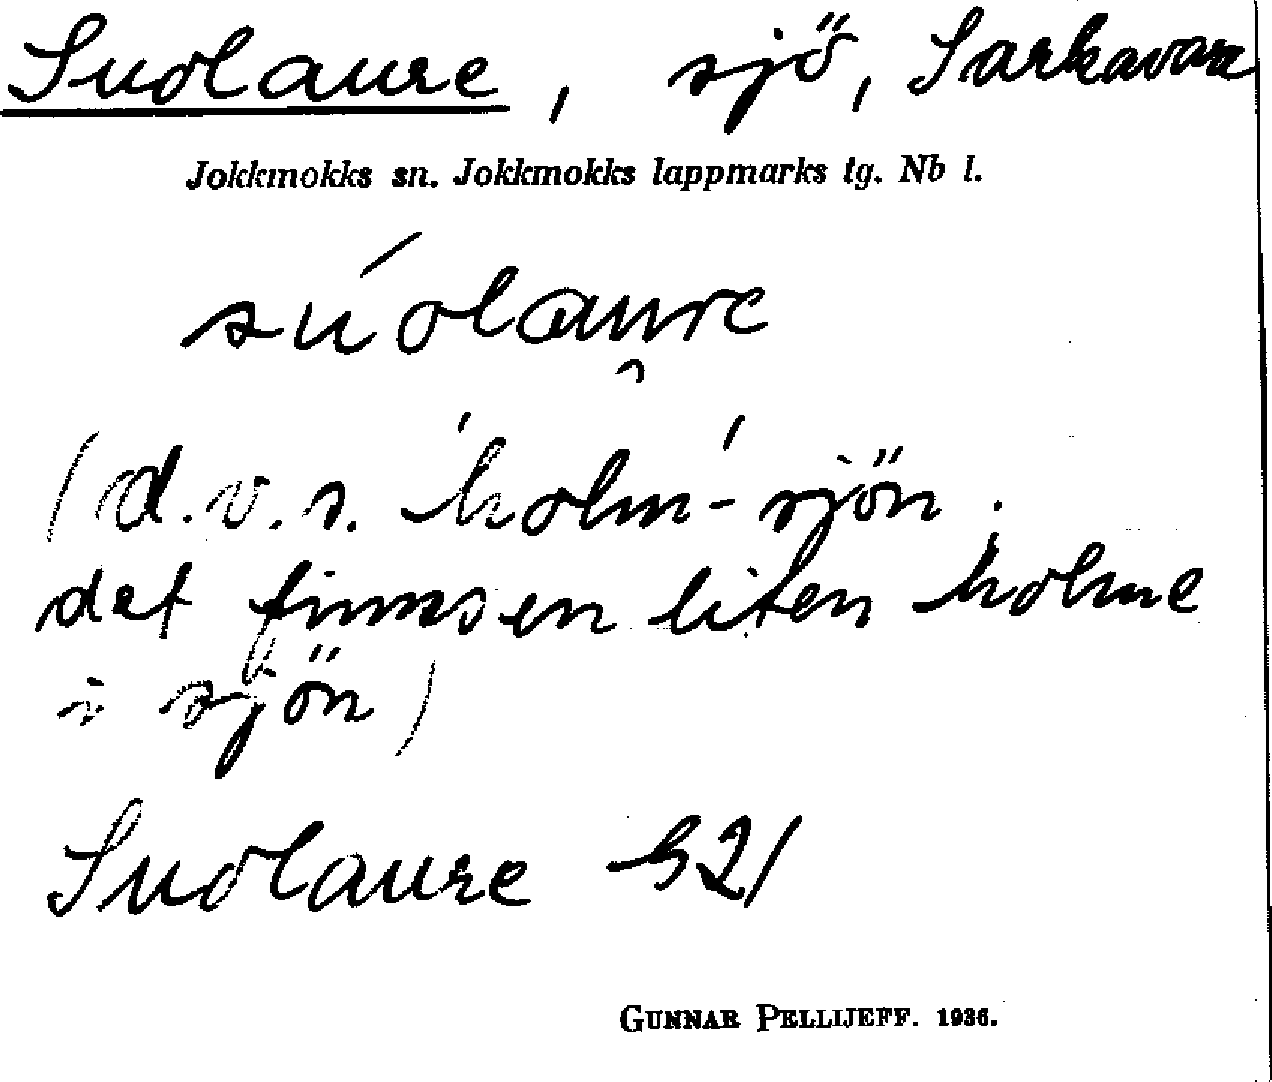 Suolaure, sjö, Sarkavare
Jokkmokks sn. Jokkmokks lappmarks tg. Nb l.
súolaure
(d.v.s. 'holm-'sjön.
det finns en liten holme
i sjön)
Suolaure G21
GUNNAR PELLIJEFF. 1936.